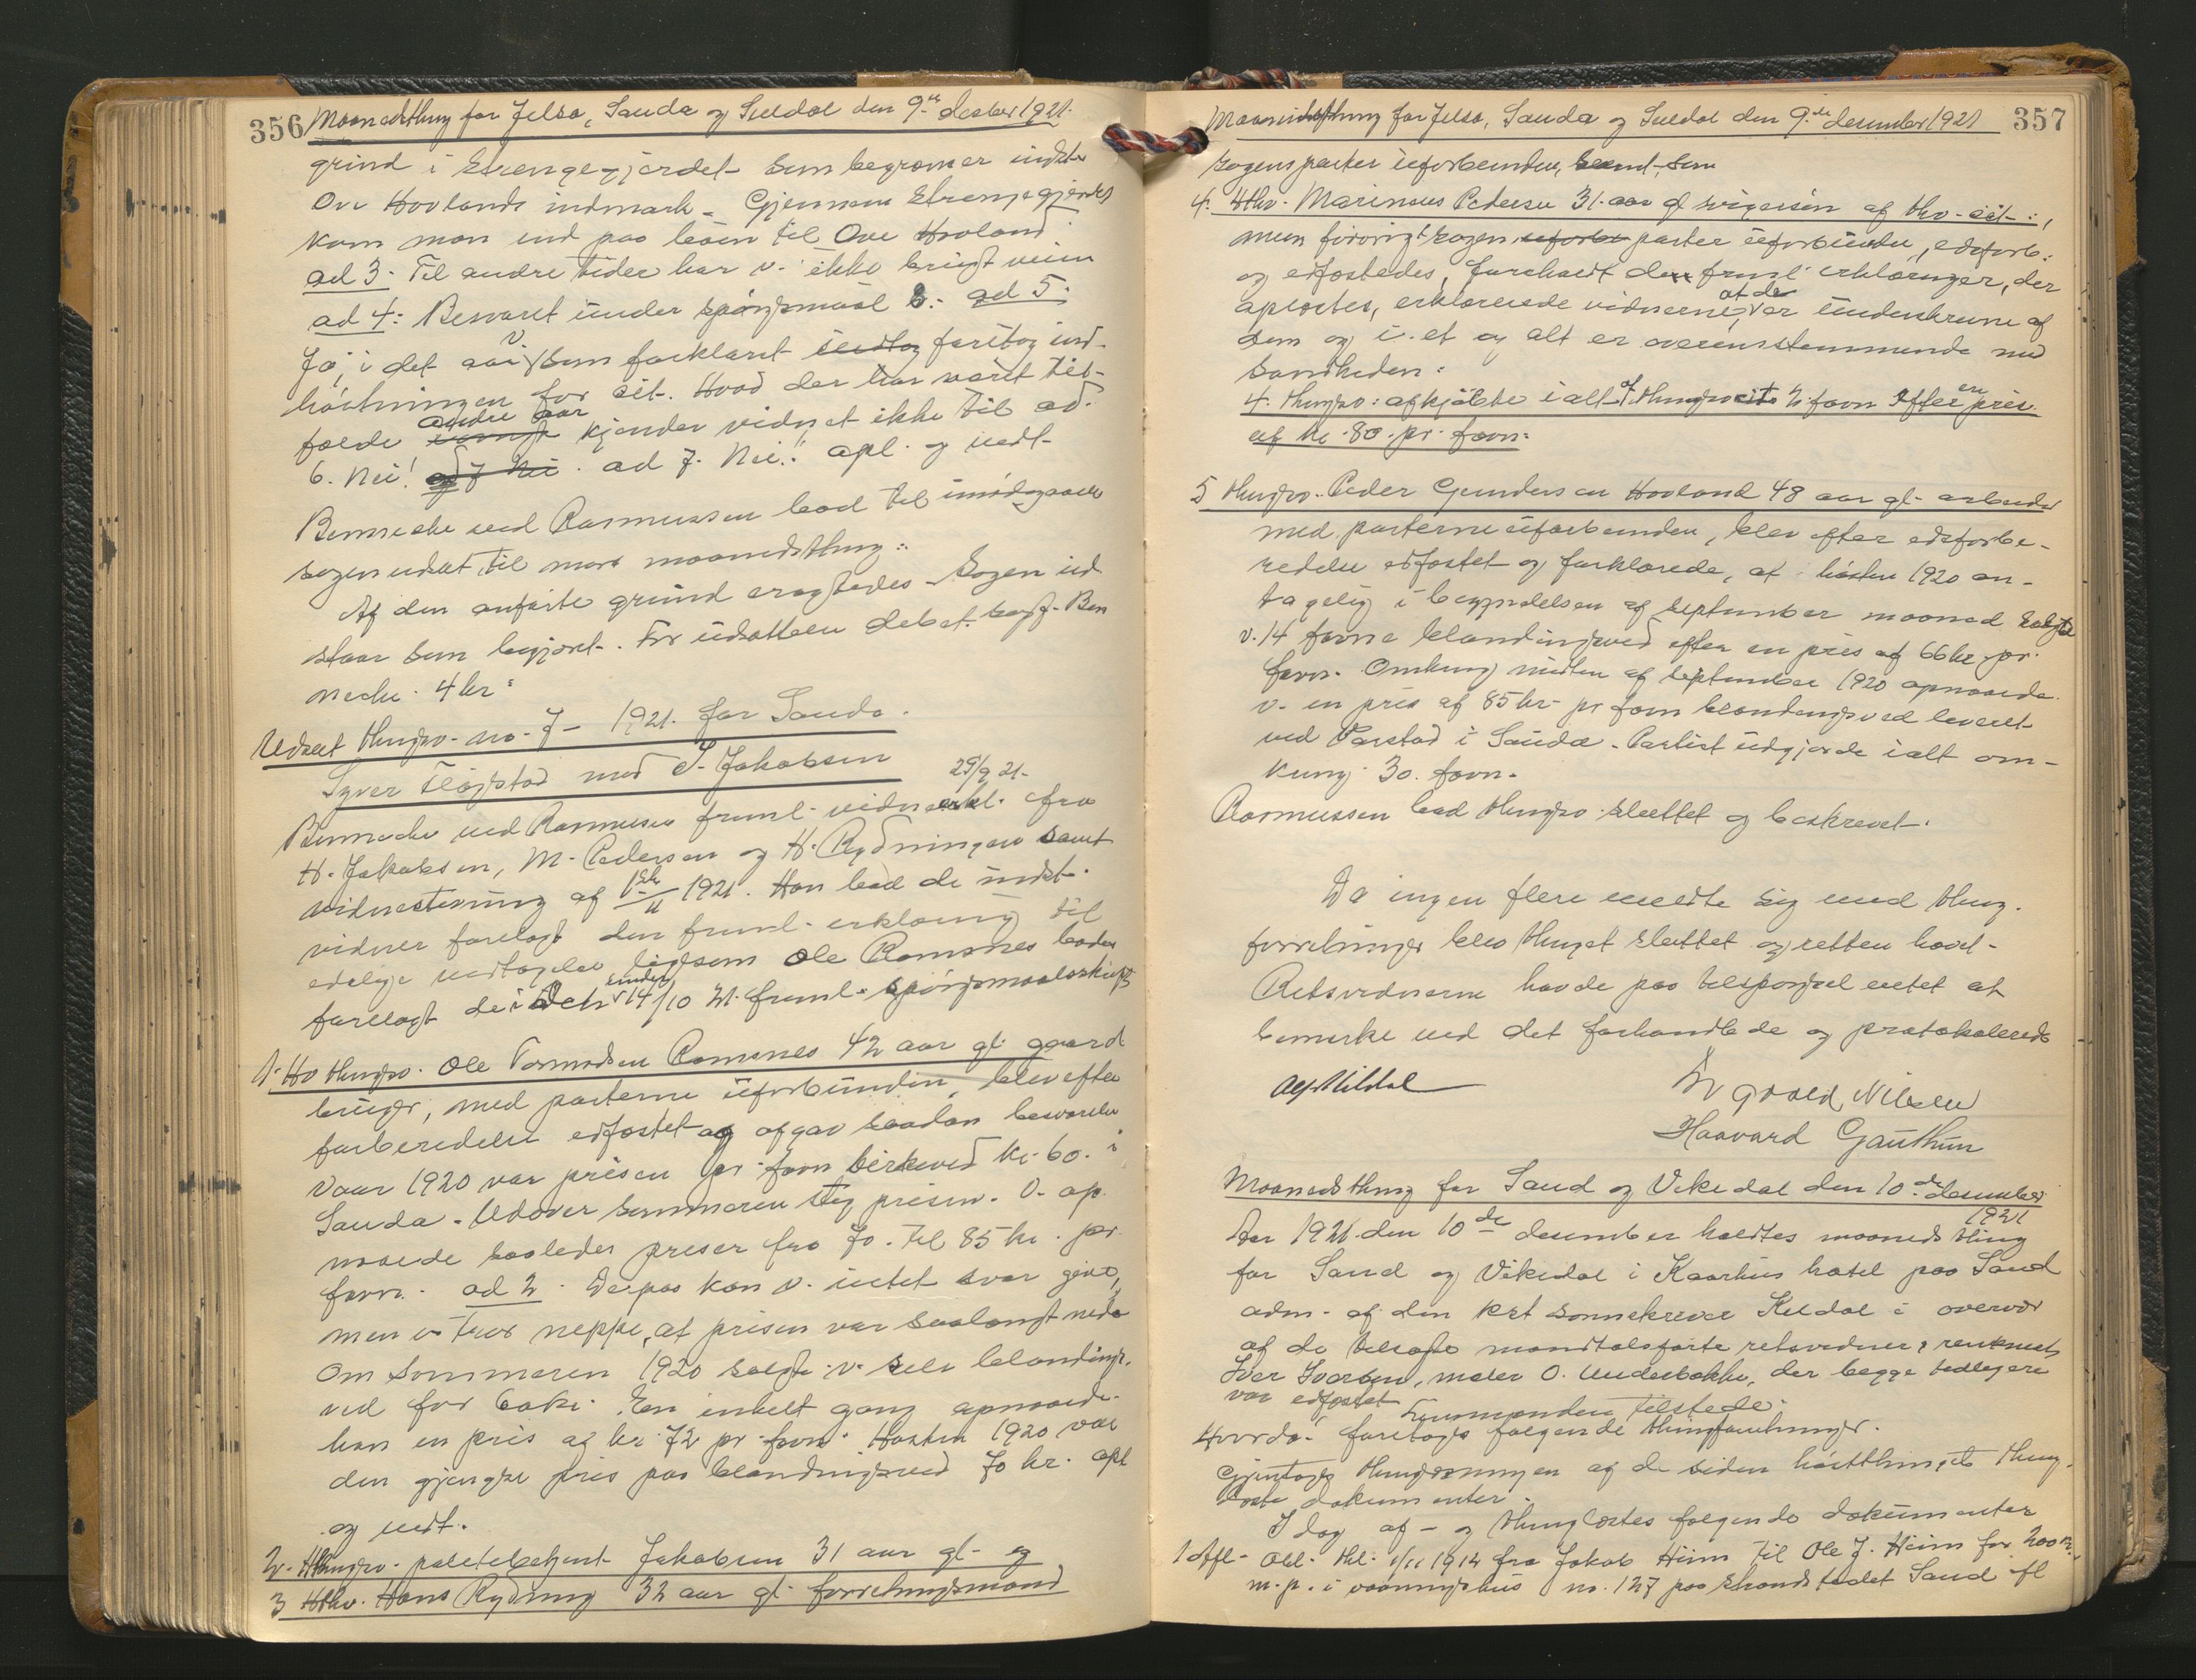 356 Maanedsthing for Jelsa, Sauda og Suldal den 9de desbr 1921.
grind i Strengegjerdet som begrænser indtil
Ove Hovlands indmark. Gjennem Strengegjerdet
kom man ind paa leéen til Ove Hovland
ad 3. Til andre tider har v. ikke brugt veien
ad 4: Besvaret under spørgsmaal 3. ad 5.
Ja, i det aar v. som forklaret foretog ind-
høstningen for cit. Hvad der har været til-
fælde andre aar kjender vidnet ikke til ad.
6. Nei! ad 7 Nei. ad 7. Nei! opl. og vedt.
Benneche ved Rasmussen bad til imødegaaelse
sagen udsat til mars maanedsthing:
Af den anførte grund eragtedes Sagen ud-
staar som begjært. For udsættelsen debet. sagf. Ben
neche 4 kr:
Udsat thingsv. no. 7 - 1921. for Sauda.
Syver Fløgstad mod S. Jakobsen
Bennecke ved Rasmussen freml. vidneerkl. 29/9 21. fra
H. Jakobsen, M. Pedersen og H. Rydningen samt
vidnestevning af 1ste/11 1921. Han bad de indst.
vidner forelagt den freml. erklæring til
edelige vedtagelse ligesom Ole Ramsnes bades
forelagt de i den under 14/10 21. freml. spørgsmaalsskrift
1. Hv thingsv. Ole Tormodsen Ramsnes 42 aar gl. gaard
bruger, med parterne uforbunden, blev efter
forberedelse edfæstet og afgav saadan besvarelse
Vaar 1920 var prisen pr. favn birkeved kr. 60. i
Sauda. Udover sommeren steg prisen. V. op.
naaede saaledes priser fra 70. til 85 kr. pr.
favn. ad 2. Derpaa kan v. intet svar give,
men v. tror neppe, at prisen var saalangt nede
Om Sommeren 1920 solgte v. selv blandings-
ved for 60 kr. En enkelt gang opnaaede
han en pris af kr. 72 pr. favn. Høsten 1920 var
den gjængse pris paa blandingsved 70 kr. opl
og vedt.
2. Hthingsv. politibetjent Jakobsen 31 aar gl. og
3 Hthv. Hans Rydning 32 aar gl. forretningsmand
Maanedsthing for Jelsa, Sauda og Suldal den 9.de desember 1921 357
sagens parter uforbundne, samt, som
4. Hthv. Marinius Pedersen 31. aar gl svigersøn af thv. cit.:,
men forøvrigt sagens parter uforbunden, edsforb.
og edfæstedes, foreholdt den freml. erklæringer, der
oplæstes, erklærede vidnerne, at de er underskrevne af
dem og i et og alt er overensstemmende med
sandheden:
4. thingsv: afkjøbte i alt af thingsvcit 2 favn efter en pris
af kr. 80. pr. favn:
5 thingsv. Peder Gundersen Hovland 48 aar gl. arbeider
med parterne uforbunden, blev efter edsforbe-
redelse edfæstet og forklarede, at høsten 1920 an-
tagelig i begyndelsen af september maaned solgte
v. 14 favne blandingsved efter en pris af 66 kr. pr.
favn. Omkring midten af september 1920 opnaaede
v. en pris af 85 kr. pr favn blandingsved leveret
ved Værstad i Sauda. Partiet udgjorde ialt om-
kring 30. favn.
Rasmussen bad thingsv. sluttet og beskrevet.
Da ingen flere meldte sig med thing.
forretninger blev thinget sluttet og retten hævet.
Retsvidnerne havde paa tilspørgsel intet at
bemerke ved det forhandlede og protokolerede
Alf Kildal
Ingvald Nilsen
Haavard Gauthun
Maanedsthing for Sand og Vikedal den 10de desember
1921
Aar 1921 den 10de desember holdtes maanedsthing
for Sand og Vikedal i Kaarhus hotel paa Sand
adm. af den kst sorenskriver Kildal i overvær
af de tilsagte mandtalsførte retsvidner:
Iver Iversen, maler O. Underbakke, der begge tidligere
var edfæstet Lensmanden tilstede.
Hvorda foretoges følgende thingforretninger.
Gjentoges thinglæsningen af de siden høstthinget thing-
læste dokumenter.
Idag af- og thinglæstes følgende dokumenter
1 Afl. Obl. thl. 1/11 1912 fra Jakob Heim til Ole J. Heim for 200 kr.
m. p. i vaaningshus no. 127 paa strandstedet Sand afl